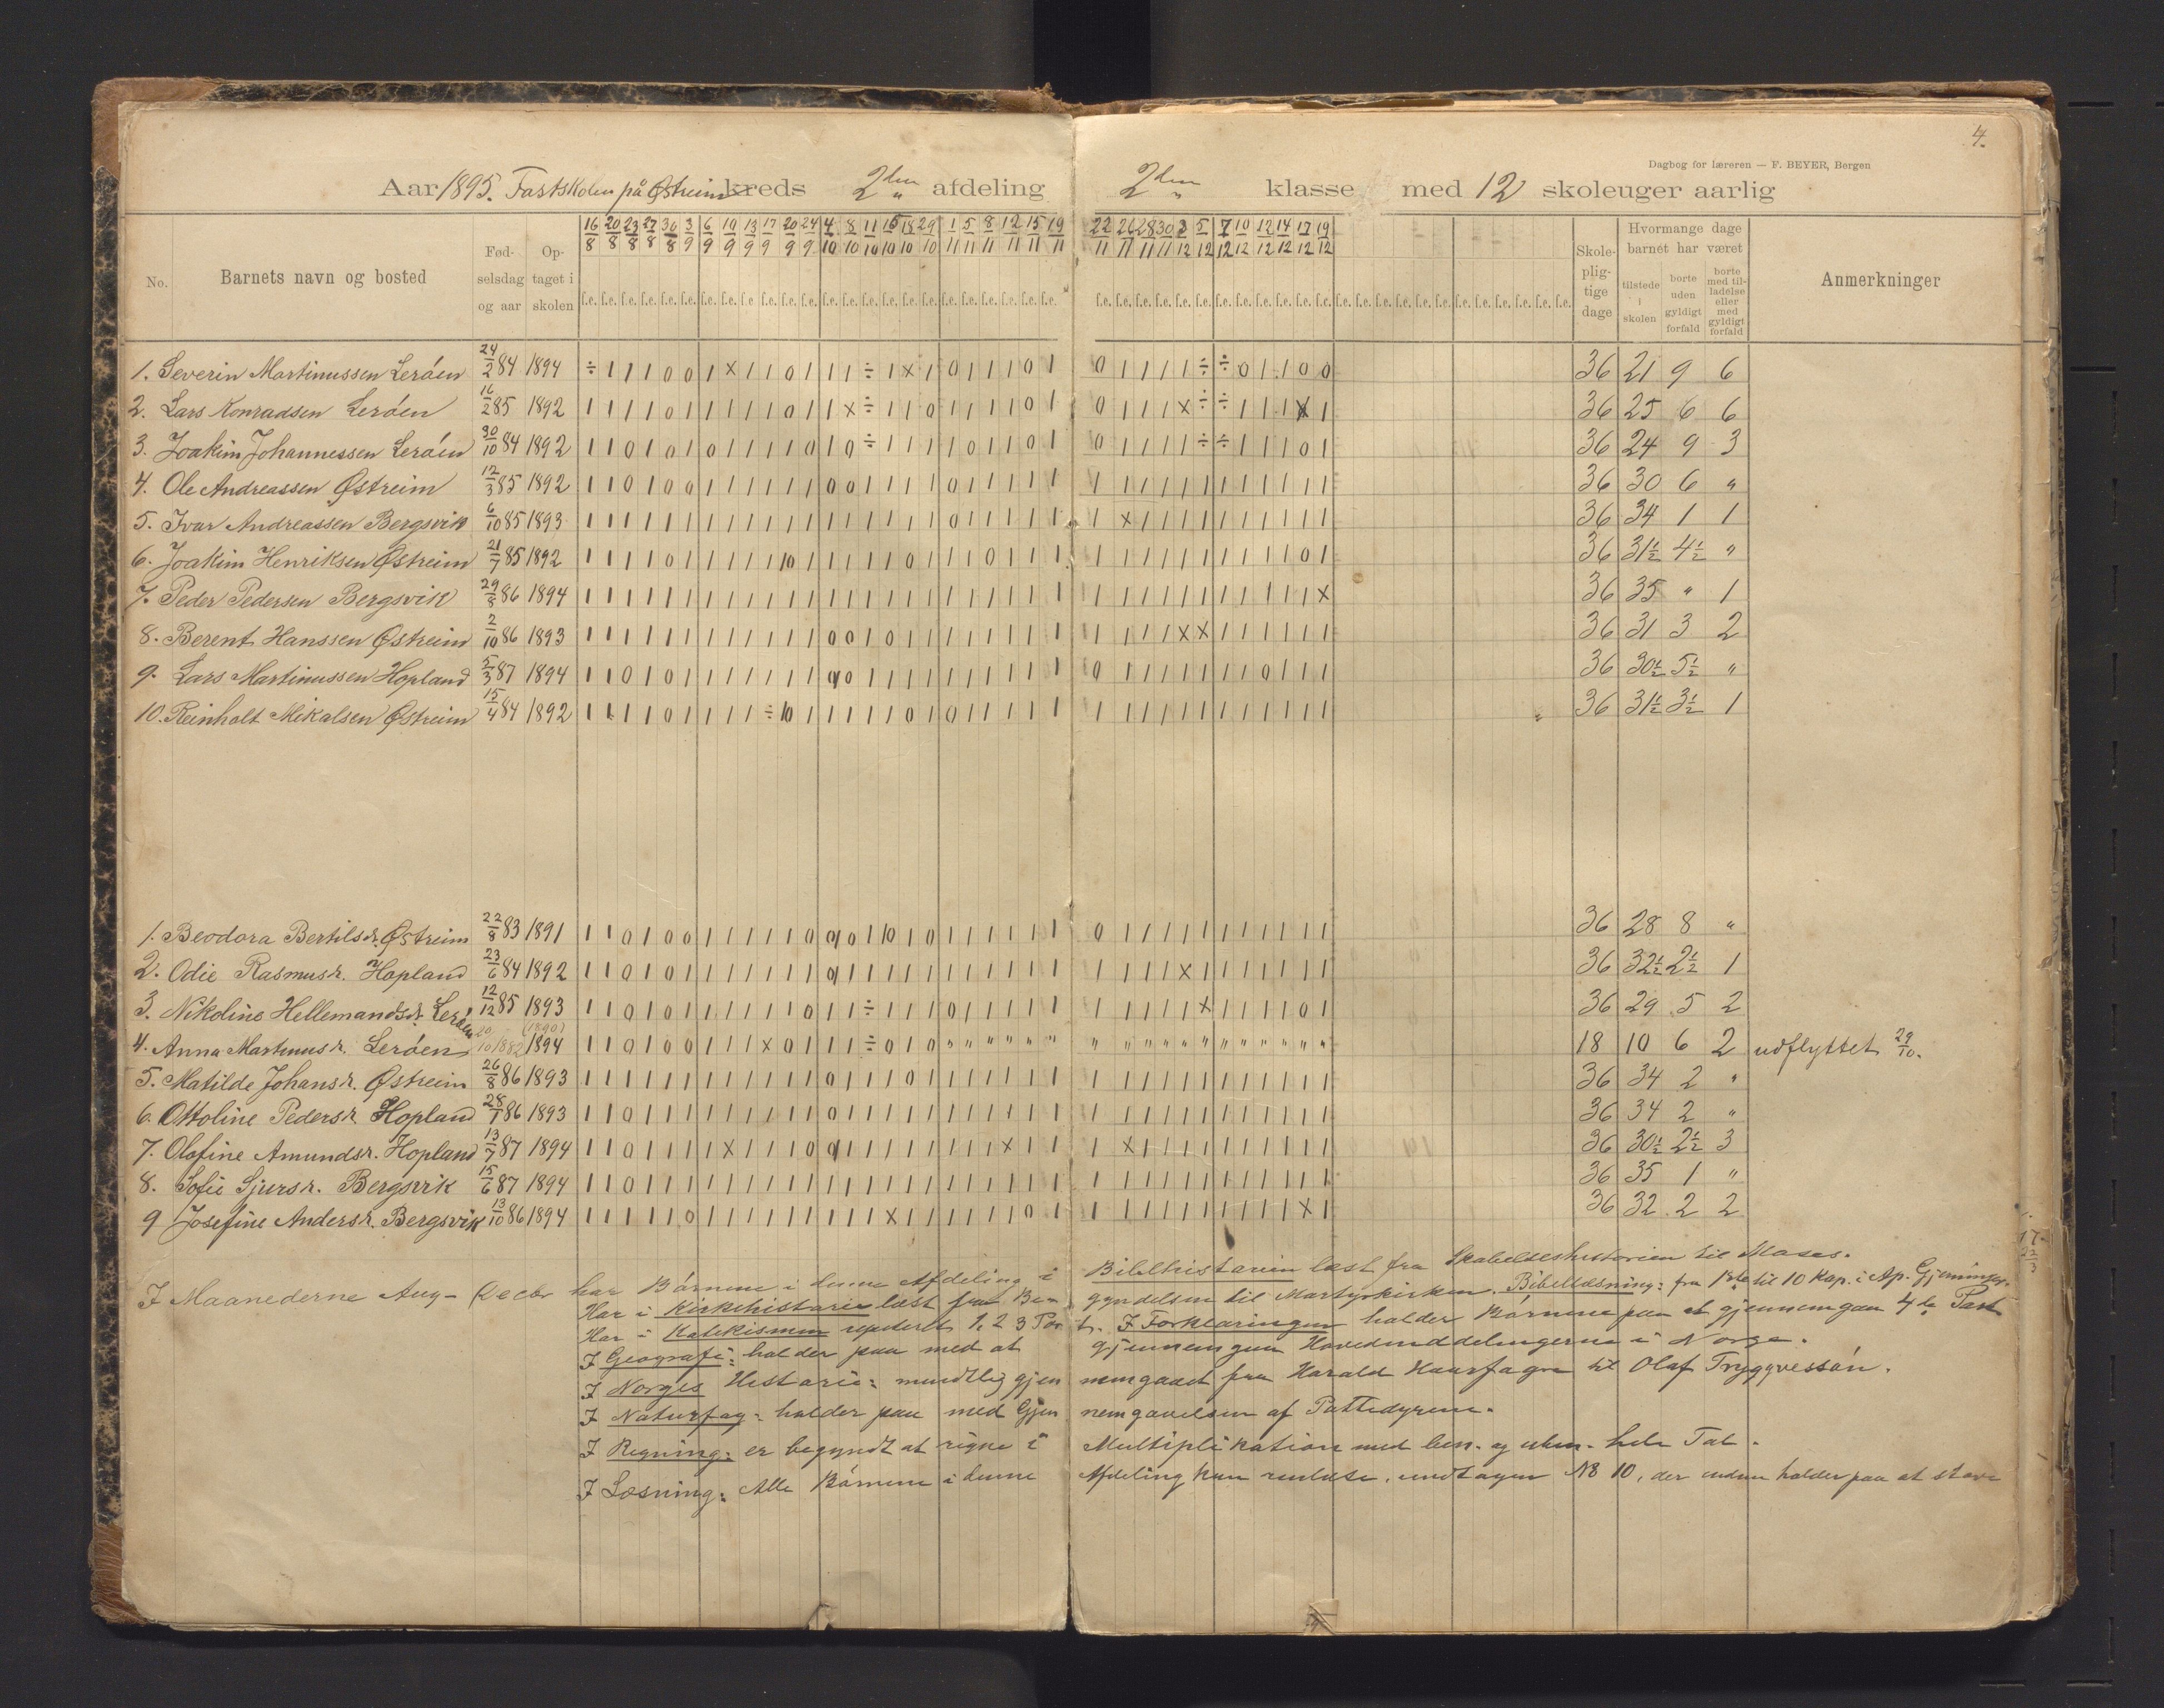 4.
Dagbog for læreren — F. BEYER, Bergen
Aar 1895. Fastskolen på Østreim kreds 2den afdeling 2den klasse med 12 skoleuger aarlig
No. Barnets navn og bosted Fødselsdag og aar Optaget i skolen Skolepligtige dage Hvormange dage barnet har været tilstede i skolen borte uden gyldigt forfald borte med tilladelse eller med gyldigt forfald Anmerkninger
16/8 20/8 23/8 27/8 30/8 3/9 6/9 10/9 13/9 17/9 20/9 24/9 4/10 8/10 11/10 15/10 18/10 29/10 1/11 5/11 8/11 12/11 15/11 19/11 22/11 26/11 28/11 30/11 3/12 5/12 7/12 10/12 12/12 14/12 17/12 19/12
1. Severin Martinussen Lerøen 24/2 84 1894 36 21 9 6
2. Lars Konradsen Lerøen 16/2 85 1892 36 25 6 6
3. Joakim Johannessen Lerøen 30/10 84 1892 36 24 9 3
4. Ole Andreassen Østreim 12/3 85 1892 36 30 6 "
5. Ivar Andreassen Bergsvik 6/10 85 1893 36 34 1 1
6. Joakim Henriksen Østreim 21/7 85 1892 36 31½ 4½ "
7. Peder Pedersen Bergsvik 29/8 86 1894 36 35 " 1
8. Berent Hanssen Østreim 2/10 86 1893 36 31 3 2
9. Lars Martinussen Hopland 5/3 87 1894 36 30½ 5½ "
10. Reinholt Mikalsen Østreim 15/4 84 1892 36 31½ 3½ 1
1. Beodora Bertilsdr. Østreim 22/8 83 1891 36 28 8 "
2. Odie Rasmusdr. Hopland 23/6 84 1892 36 32½ 2½ 1
3. Nikoline Hellemandsdr. Lerøen 12/12 85 1893 36 29 5 2
4. Anna Martinusdr. Lerøen 20/10 1882 (1890) 1894 18 10 6 2 udflyttet 29/10.
5. Matilde Johansdr. Østreim 26/8 86 1893 36 34 2 "
6. Ottoline Pedersdr. Hopland 28/1 86 1893 36 34 2 "
7. Olofine Amundsdr. Hopland 13/7 87 1894 36 30½ 2½ 3
8. Sofie Sjursdr. Bergsvik 15/6 87 1894 36 35 1 "
9 Josefine Andersdr. Bergsvik 13/10 86 1894 36 32 2 2
I Maanederne Aug – Decbr har Børnene i denne Afdeling i Bibelhistorien læst fra Skabelseshistorien til Moses.
Har i Kirkehistorie læst fra Begyndelsen til Martyrkirken. Bibellæsning: fra 1ste til 10 Kap. i Ap. Gjerninger.
Har i Katekismen repeteret 1. 2 3 Part. I Forklaringen holder Børnene paa at gjennemgaa 4de Part
I Geografi: holder paa med at gjennemgaa Hovedinddelingerne i Norge.
I Norges Historie: mundtlig gjennemgaaet fra Harald Haarfagre til Olaf Tryggvessøn.
I Naturfag: holder paa med Gjennemgaaelsen af Pattedyrene.
I Regning: er begyndt at regne i Multiplikation med ben. og uben. hele Tal.
I Læsning: Alle Børnene i denne Afdeling kan renlæse, undtagen No 10, der endnu holder paa at stave